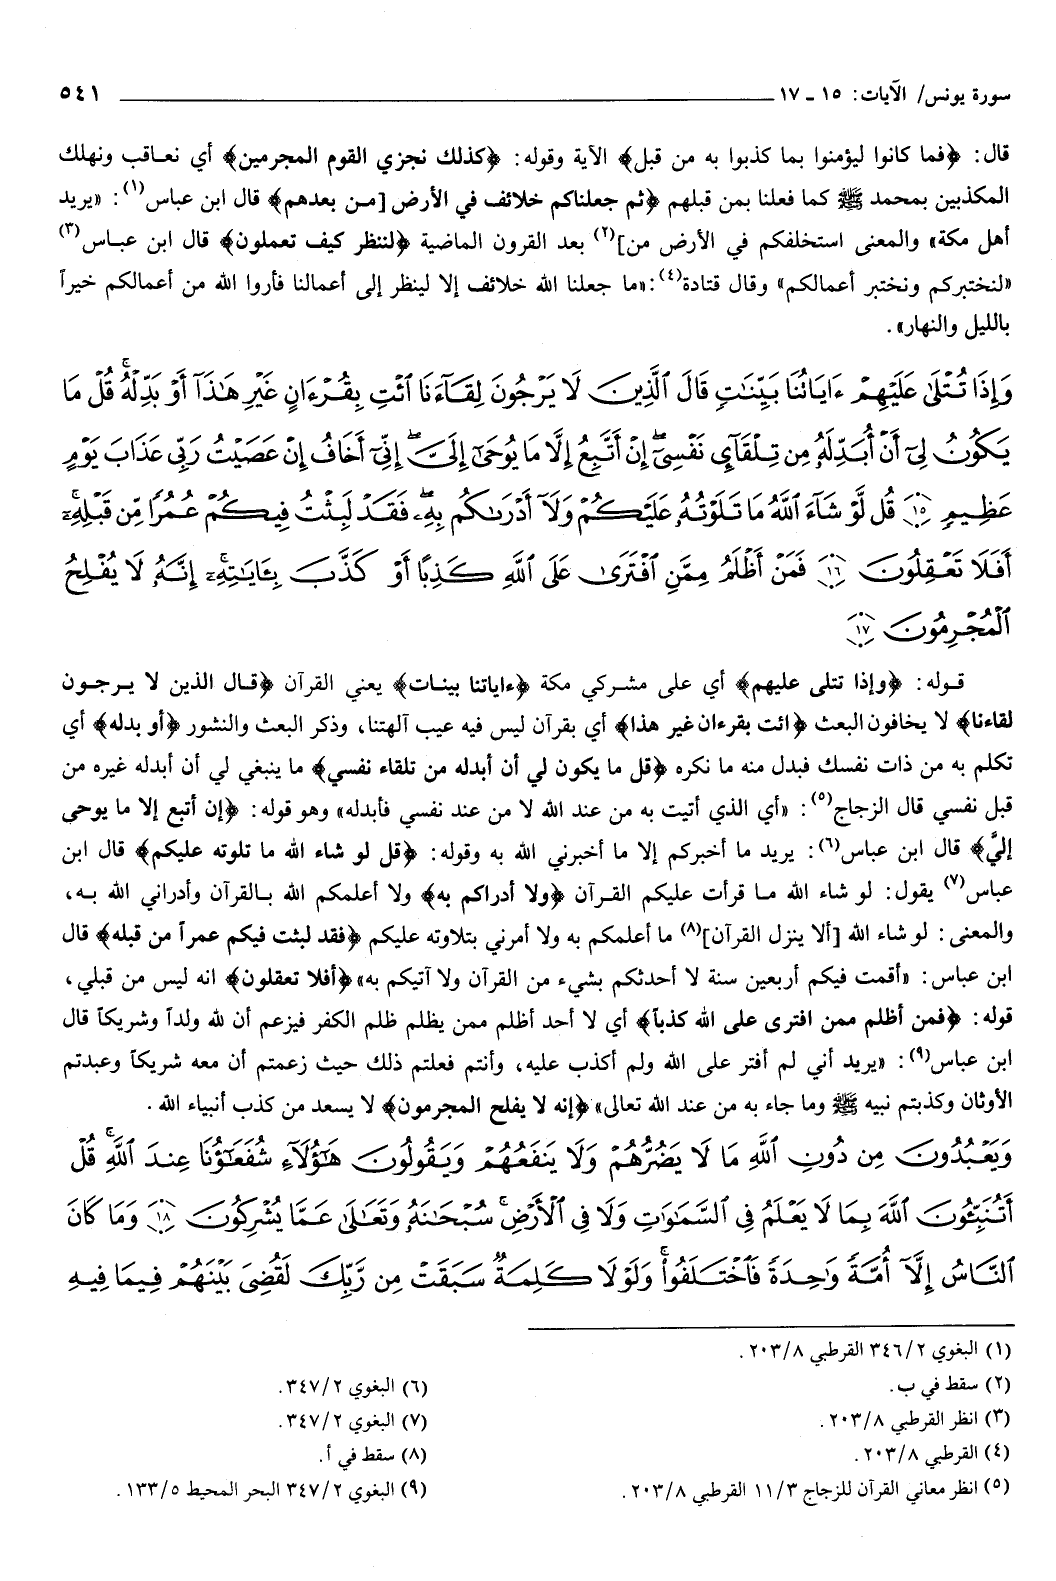 سورة يونس/ الآيات: ١٥ ـ ١٧ ٥٤١
قال: ﴿فما كانوا ليؤمنوا بما كذبوا به من قبل﴾ الآية وقوله: ﴿كذلك نجزي القوم المجرمين﴾ أي نعاقب ونهلك
المكذبين بمحمد ﷺ كما فعلنا بمن قبلهم ﴿ثم جعلناكم خلائف في الأرض [من بعدهم﴾ قال ابن عباس(١): «يريد
أهل مكة» والمعنى استخلفكم في الأرض من](٢) بعد القرون الماضية ﴿لننظر كيف تعملون﴾ قال ابن عباس(٣)
«لنختبركم ونختبر أعمالكم» وقال قتادة(٤): «ما جعلنا الله خلائف إلا لينظر إلى أعمالنا فأروا الله من أعمالكم خيراً
بالليل والنهار».
وَإِذَا تُتْلَىٰ عَلَيْهِمْ ءَايَاتُنَا بَيِّنَٰتٍ قَالَ ٱلَّذِينَ لَا يَرْجُونَ لِقَآءَنَا ٱئْتِ بِقُرْءَانٍ غَيْرِ هَٰذَآ أَوْ بَدِّلْهُ ۚ قُلْ مَا
يَكُونُ لِىٓ أَنْ أُبَدِّلَهُۥ مِن تِلْقَآئِ نَفْسِىٓ ۖ إِنْ أَتَّبِعُ إِلَّا مَا يُوحَىٰٓ إِلَىَّ ۖ إِنِّىٓ أَخَافُ إِنْ عَصَيْتُ رَبِّى عَذَابَ يَوْمٍ
عَظِيمٍ ١٥ قُل لَّوْ شَآءَ ٱللَّهُ مَا تَلَوْتُهُۥ عَلَيْكُمْ وَلَآ أَدْرَىٰكُم بِهِۦ ۖ فَقَدْ لَبِثْتُ فِيكُمْ عُمُرًا مِّن قَبْلِهِۦٓ ۚ
أَفَلَا تَعْقِلُونَ ١٦ فَمَنْ أَظْلَمُ مِمَّنِ ٱفْتَرَىٰ عَلَى ٱللَّهِ كَذِبًا أَوْ كَذَّبَ بِـَٔايَٰتِهِۦٓ ۚ إِنَّهُۥ لَا يُفْلِحُ
ٱلْمُجْرِمُونَ ١٧
قوله: ﴿وإذا تتلى عليهم﴾ أي على مشركي مكة ﴿ءاياتنا بينات﴾ يعني القرآن ﴿قال الذين لا يرجون
لقاءنا﴾ لا يخافون البعث ﴿ائت بقرءان غير هذا﴾ أي بقرآن ليس فيه عيب آلهتنا، وذكر البعث والنشور ﴿أو بدله﴾ أي
تكلم به من ذات نفسك فبدل منه ما نكره ﴿قل ما يكون لي أن أبدله من تلقاء نفسي﴾ ما ينبغي لي أن أبدله غيره من
قبل نفسي قال الزجاج(٥): «أي الذي أتيت به من عند الله لا من عند نفسي فأبدله» وهو قوله: ﴿إن أتبع إلا ما يوحى
إليَّ﴾ قال ابن عباس(٦): يريد ما أخبركم إلا ما أخبرني الله به وقوله: ﴿قل لو شاء الله ما تلوته عليكم﴾ قال ابن
عباس(٧) يقول: لو شاء الله ما قرأت عليكم القرآن ﴿ولا أدراكم به﴾ ولا أعلمكم الله بالقرآن وأدراني الله به،
والمعنى: لو شاء الله [ألا ينزل القرآن](٨) ما أعلمكم به ولا أمرني بتلاوته عليكم ﴿فقد لبثت فيكم عمراً من قبله﴾ قال
ابن عباس: «أقمت فيكم أربعين سنة لا أحدثكم بشيء من القرآن ولا آتيكم به» ﴿أفلا تعقلون﴾ انه ليس من قبلي،
قوله: ﴿فمن أظلم ممن افترى على الله كذباً﴾ أي لا أحد أظلم ممن يظلم ظلم الكفر فيزعم أن لله ولداً وشريكاً قال
ابن عباس(٩): «يريد أني لم أفتر على الله ولم أكذب عليه، وأنتم فعلتم ذلك حيث زعمتم أن معه شريكاً وعبدتم
الأوثان وكذبتم نبيه ﷺ وما جاء به من عند الله تعالى» ﴿إنه لا يفلح المجرمون﴾ لا يسعد من كذب أنبياء الله.
وَيَعْبُدُونَ مِن دُونِ ٱللَّهِ مَا لَا يَضُرُّهُمْ وَلَا يَنفَعُهُمْ وَيَقُولُونَ هَٰٓؤُلَآءِ شُفَعَٰٓؤُنَا عِندَ ٱللَّهِ ۚ قُلْ
أَتُنَبِّـُٔونَ ٱللَّهَ بِمَا لَا يَعْلَمُ فِى ٱلسَّمَٰوَٰتِ وَلَا فِى ٱلْأَرْضِ ۚ سُبْحَٰنَهُۥ وَتَعَٰلَىٰ عَمَّا يُشْرِكُونَ ١٨ وَمَا كَانَ
ٱلنَّاسُ إِلَّآ أُمَّةً وَٰحِدَةً فَٱخْتَلَفُوا۟ ۚ وَلَوْلَا كَلِمَةٌ سَبَقَتْ مِن رَّبِّكَ لَقُضِىَ بَيْنَهُمْ فِيمَا فِيهِ
(١) البغوي ٣٤٦/٢ القرطبي ٢٠٣/٨.
(٢) سقط في ب.
(٣) انظر القرطبي ٢٠٣/٨.
(٤) القرطبي ٢٠٣/٨.
(٥) انظر معاني القرآن للزجاج ١١/٣ القرطبي ٢٠٣/٨.
(٦) البغوي ٣٤٧/٢.
(٧) البغوي ٣٤٧/٢.
(٨) سقط في أ.
(٩) البغوي ٣٤٧/٢ البحر المحيط ١٣٣/٥.